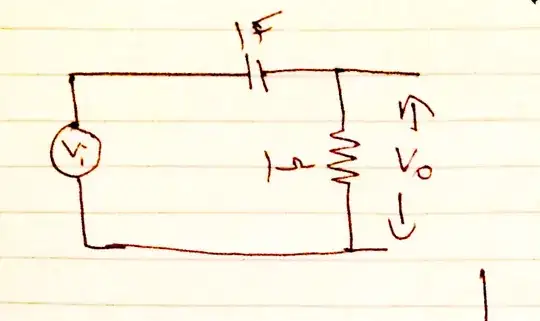 1F
Vi
1Ω
Vo